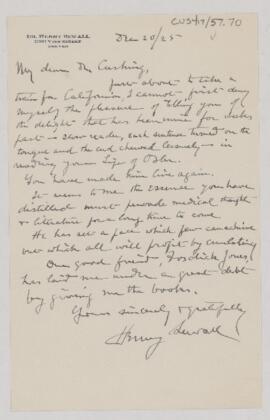 CUS417/57.70
DR. HENRY SEWALL
Dec 20/25
My dear Dr Cushing,
Just about to take a
train for California, I cannot first deny
myself the pleasure of telling you of
the delight that has been mine for weeks
past - slow reader, each sentence turned on the
tongue and the cud chewed leisurely - in
reading your Life of Osler.
You have made him live again.
It seems to me the essence you have
distilled must pervade medical thought
& literature for a long time to come
He has set a pace which few can achieve
but which all will profit by emulating
Our good friend, Fosdick Jones,
has laid me under a great debt
by giving me the books.
Yours sincerely & gratefully
Henry Sewall